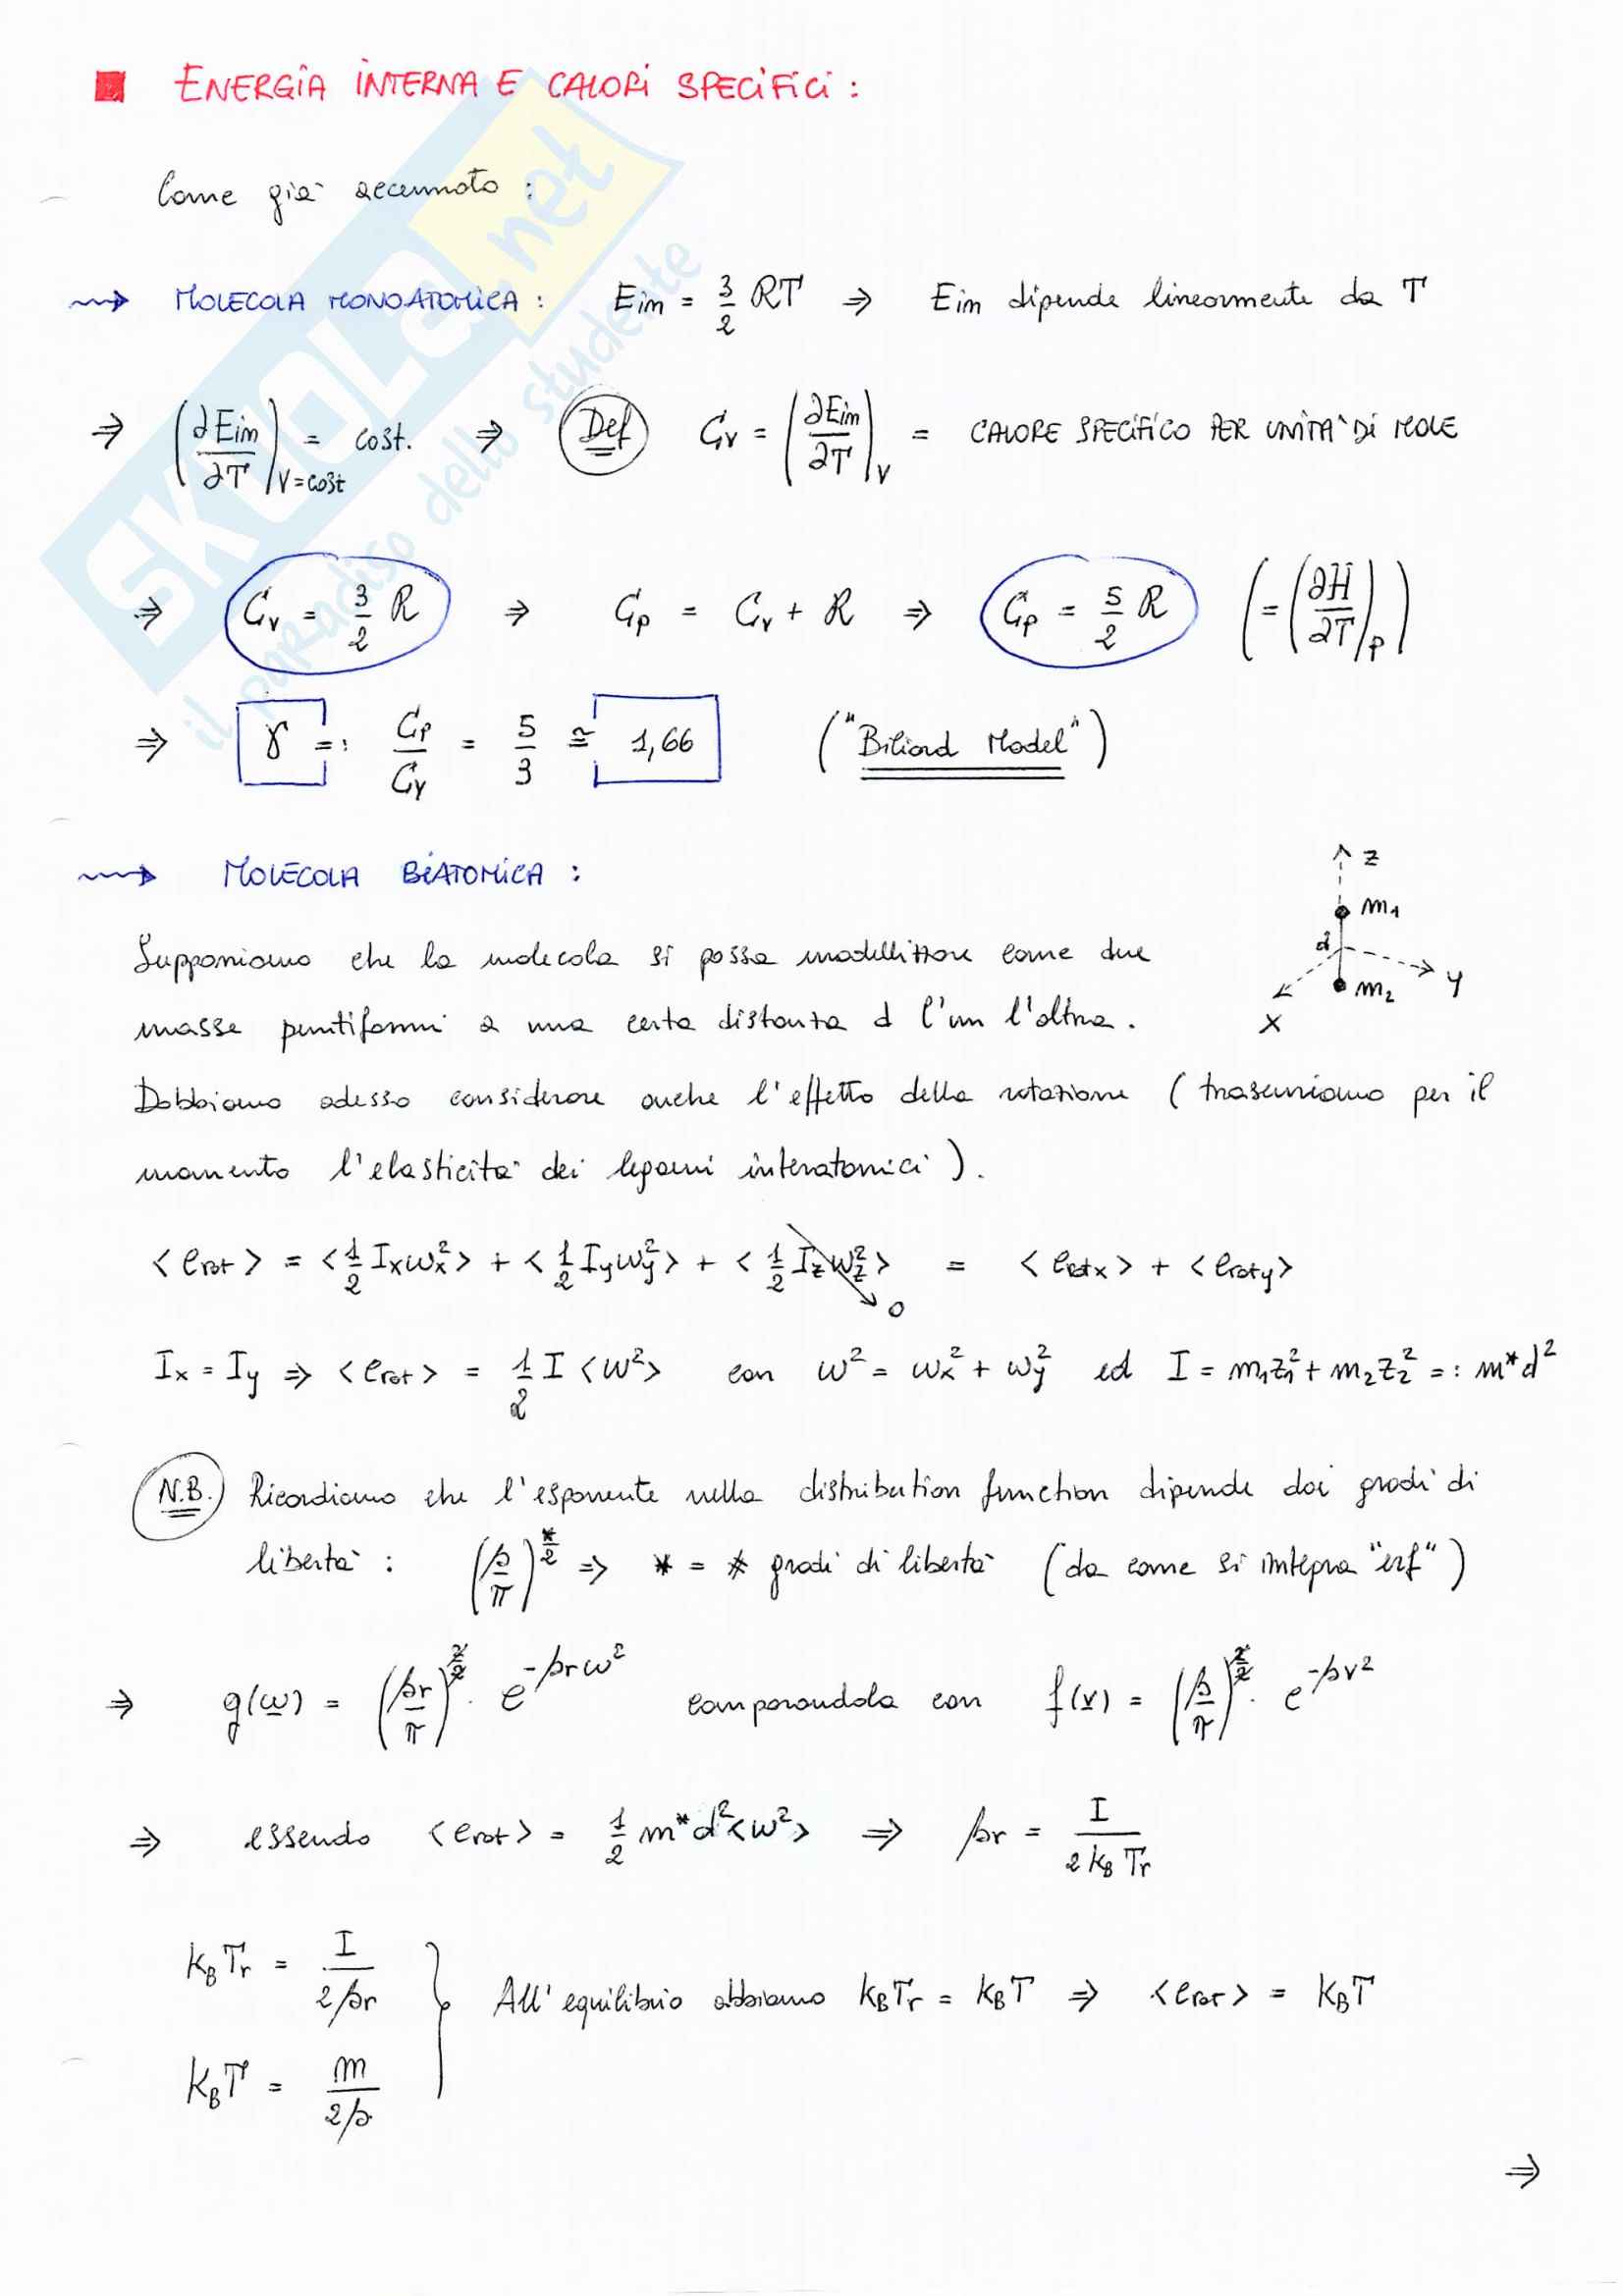 ■ ENERGIA INTERNA E CALORI SPECIFICI :
Come già accennato :
⇝ MOLECOLA MONOATOMICA : Eim = 3/2 RT ⇒ Eim dipende linearmente da T
⇒ (∂Eim/∂T)V=cost = cost. ⇒ Def Cv = (∂Eim/∂T)V = CALORE SPECIFICO PER UNITA' DI MOLE
⇒ Cv = 3/2 R ⇒ Cp = Cv + R ⇒ Cp = 5/2 R (= (∂H/∂T)P)
⇒ γ =: Cp/Cv = 5/3 ≅ 1,66 ("Biliard Model")
⇝ MOLECOLA BIATOMICA :
z m₁ d y m₂ x
Supponiamo che la molecola si possa modellizzare come due
masse puntiformi a una certa distanza d l'un l'altra.
Dobbiamo adesso considerare anche l'effetto della rotazione ( trascuriamo per il
momento l'elasticità dei legami interatomici ).
<erot> = <1/2 Ixωx²> + <1/2 Iyωy²> + <1/2 Izωz²> → 0 = <erotx> + <eroty>
Ix = Iy ⇒ <erot> = 1/2 I <ω²> con ω² = ωx² + ωy² ed I = m₁z₁² + m₂z₂² =: m*d²
N.B. Ricordiamo che l'esponente nella distribution function dipende dai gradi di
libertà : (β/π)^(*/2) ⇒ * = # gradi di libertà (da come si integra "erf")
⇒ g(ω) = (βr/π)^(2/2) · e^(-βrω²) comparandola con f(v) = (β/π)^(2/2) · e^(-βv²)
⇒ essendo <erot> = 1/2 m*d²<ω²> ⇒ βr = I/(2kBTr)
kBTr = I/(2βr)
All'equilibrio abbiamo kBTr = kBT ⇒ <erot> = kBT
kBT = m/(2β)
⇒
SKUOLA.net
il paradiso dello studente